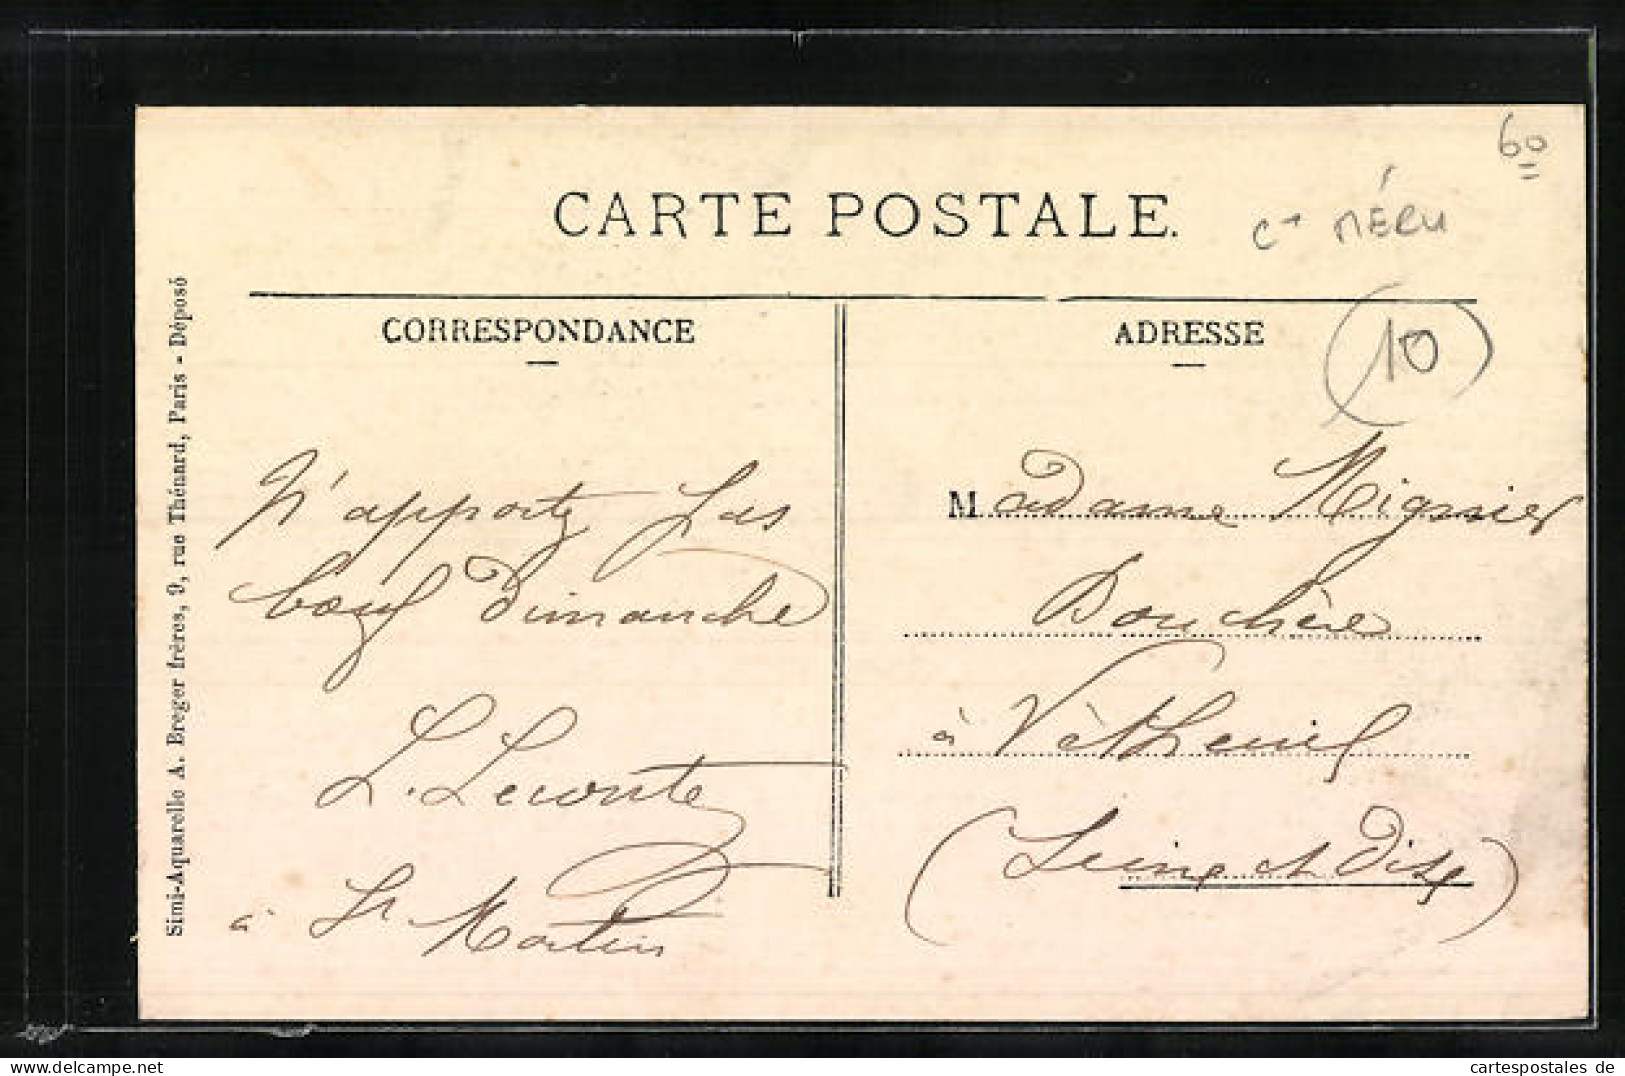 60
CARTE POSTALE.
Cⁿ MÉRU
CORRESPONDANCE
ADRESSE
10
N'apporte pas
bœuf Dimanche
L. Leconte
à St Martin
Madame Mignier
Bouchère
à Vétheuil
(Seine et Oise)
Simi-Aquarelle A. Breger frères, 9, rue Thénard, Paris - Déposé
cartespostales de